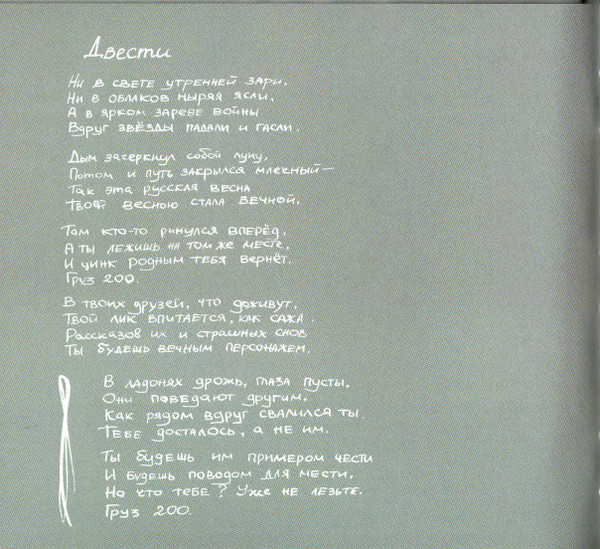 Двести
Ни в свете утренней зари,
Ни в облаков ныряя ясли,
А в ярком зареве войны
Вдруг звёзды падали и гасли.
Дым зачеркнул собой луну,
Потом и путь закрылся млечный—
Так эта русская весна
Твоей весною стала вечной.
Там кто-то ринулся вперёд,
А ты лежишь на том же месте,
И цинк родным тебя вернёт.
Груз 200.
В твоих друзей, что доживут,
Твой лик впитается, как сажа.
Рассказов их и страшных снов
Ты будешь вечным персонажем.
В ладонях дрожь, глаза пусты,
Они поведают другим,
Как рядом вдруг свалился ты.
Тебе досталось, а не им.
Ты будешь им примером чести
И будешь поводом для мести,
Но что тебе? Уже не лезьте.
Груз 200.